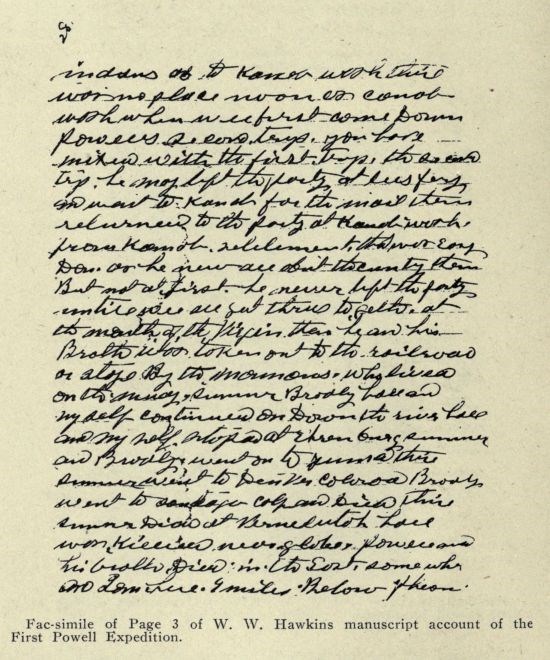 3
indans as to Kanab wosh thire
was no place noon as canob
wosh when wee first come Down
Powells Second trip. you have
mixed with the first trip. the second
trip. he may left the party at lees fery
an went to Kanab for the mail then
returned to the party at Kanab wosh.
from Kanab. setelement that was Easy
Don. as he new all about the cuntry then
But not at first. he never left the party
untile wee all got thrue to gether at
the mouth of the Virgin then he an his
Brothe was taken out to the railroad
or stage By the mormons. who lived
on the mudy. sumner Brady hall and
my self continued on Down the river hall
and my self stoped at Ehrenburg sumner
and Brady went on to yuma thire
sumner went to Denver colorod Brady
went to colp an Died thire
sumner Died at Vernal utoh hall
was killed near globe. Powell and
his brothe Died in the East some whe
an I am hire. 9 miles Below
Fac-simile of Page 3 of W. W. Hawkins manuscript account of the
First Powell Expedition.